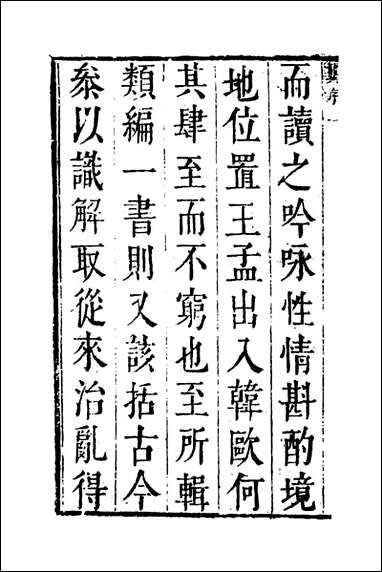 而讀之吟咏性情斟酌境
地位置王孟出入韓歐何
其肆至而不窮也至所輯
類編一書則又該括古今
叅以識解取從來治亂得